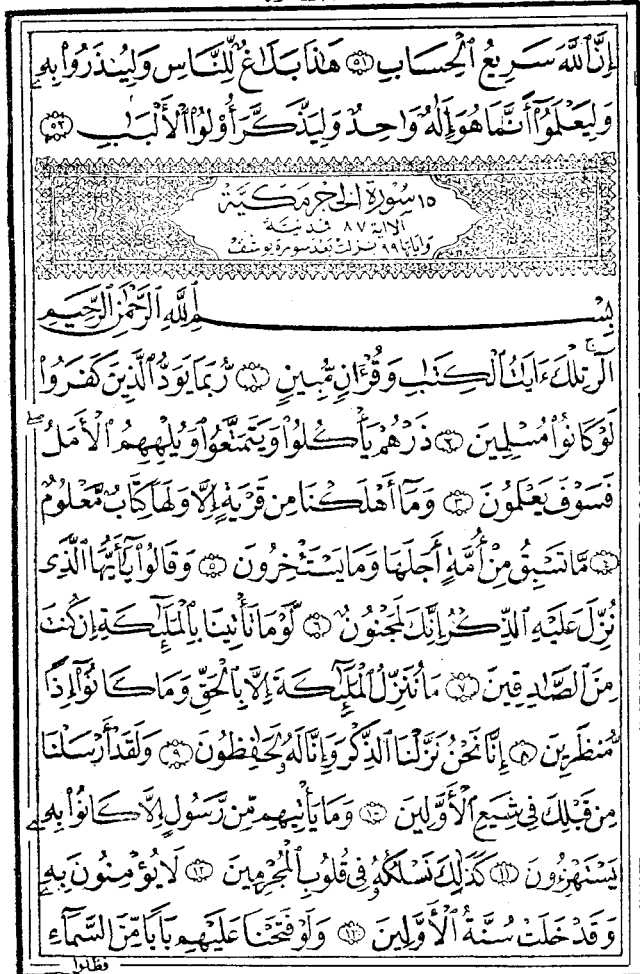 إِنَّ ٱللَّهَ سَرِيعُ ٱلْحِسَابِ ۝٥١ هَٰذَا بَلَٰغٌ لِّلنَّاسِ وَلِيُنذَرُوا۟ بِهِۦ
وَلِيَعْلَمُوٓا۟ أَنَّمَا هُوَ إِلَٰهٌ وَٰحِدٌ وَلِيَذَّكَّرَ أُو۟لُوا۟ ٱلْأَلْبَٰبِ ۝٥٢
١٥ سُورَةُ الحِجْرِ مَكِيَّة
الا اية ٨٧ فمدنية
وآياتها ٩٩ نزلت بعد سورة يوسف
بِسْمِ ٱللَّهِ ٱلرَّحْمَٰنِ ٱلرَّحِيمِ
الٓر ۚ تِلْكَ ءَايَٰتُ ٱلْكِتَٰبِ وَقُرْءَانٍ مُّبِينٍ ۝١ رُّبَمَا يَوَدُّ ٱلَّذِينَ كَفَرُوا۟
لَوْ كَانُوا۟ مُسْلِمِينَ ۝٢ ذَرْهُمْ يَأْكُلُوا۟ وَيَتَمَتَّعُوا۟ وَيُلْهِهِمُ ٱلْأَمَلُ ۖ
فَسَوْفَ يَعْلَمُونَ ۝٣ وَمَآ أَهْلَكْنَا مِن قَرْيَةٍ إِلَّا وَلَهَا كِتَابٌ مَّعْلُومٌ
۝٤ مَّا تَسْبِقُ مِنْ أُمَّةٍ أَجَلَهَا وَمَا يَسْتَـْٔخِرُونَ ۝٥ وَقَالُوا۟ يَٰٓأَيُّهَا ٱلَّذِى
نُزِّلَ عَلَيْهِ ٱلذِّكْرُ إِنَّكَ لَمَجْنُونٌ ۝٦ لَّوْ مَا تَأْتِينَا بِٱلْمَلَٰٓئِكَةِ إِن كُنتَ
مِنَ ٱلصَّٰدِقِينَ ۝٧ مَا نُنَزِّلُ ٱلْمَلَٰٓئِكَةَ إِلَّا بِٱلْحَقِّ وَمَا كَانُوٓا۟ إِذًا
مُّنظَرِينَ ۝٨ إِنَّا نَحْنُ نَزَّلْنَا ٱلذِّكْرَ وَإِنَّا لَهُۥ لَحَٰفِظُونَ ۝٩ وَلَقَدْ أَرْسَلْنَا
مِن قَبْلِكَ فِى شِيَعِ ٱلْأَوَّلِينَ ۝١٠ وَمَا يَأْتِيهِم مِّن رَّسُولٍ إِلَّا كَانُوا۟ بِهِۦ
يَسْتَهْزِءُونَ ۝١١ كَذَٰلِكَ نَسْلُكُهُۥ فِى قُلُوبِ ٱلْمُجْرِمِينَ ۝١٢ لَا يُؤْمِنُونَ بِهِۦ ۖ
وَقَدْ خَلَتْ سُنَّةُ ٱلْأَوَّلِينَ ۝١٣ وَلَوْ فَتَحْنَا عَلَيْهِم بَابًا مِّنَ ٱلسَّمَآءِ
فظلوا